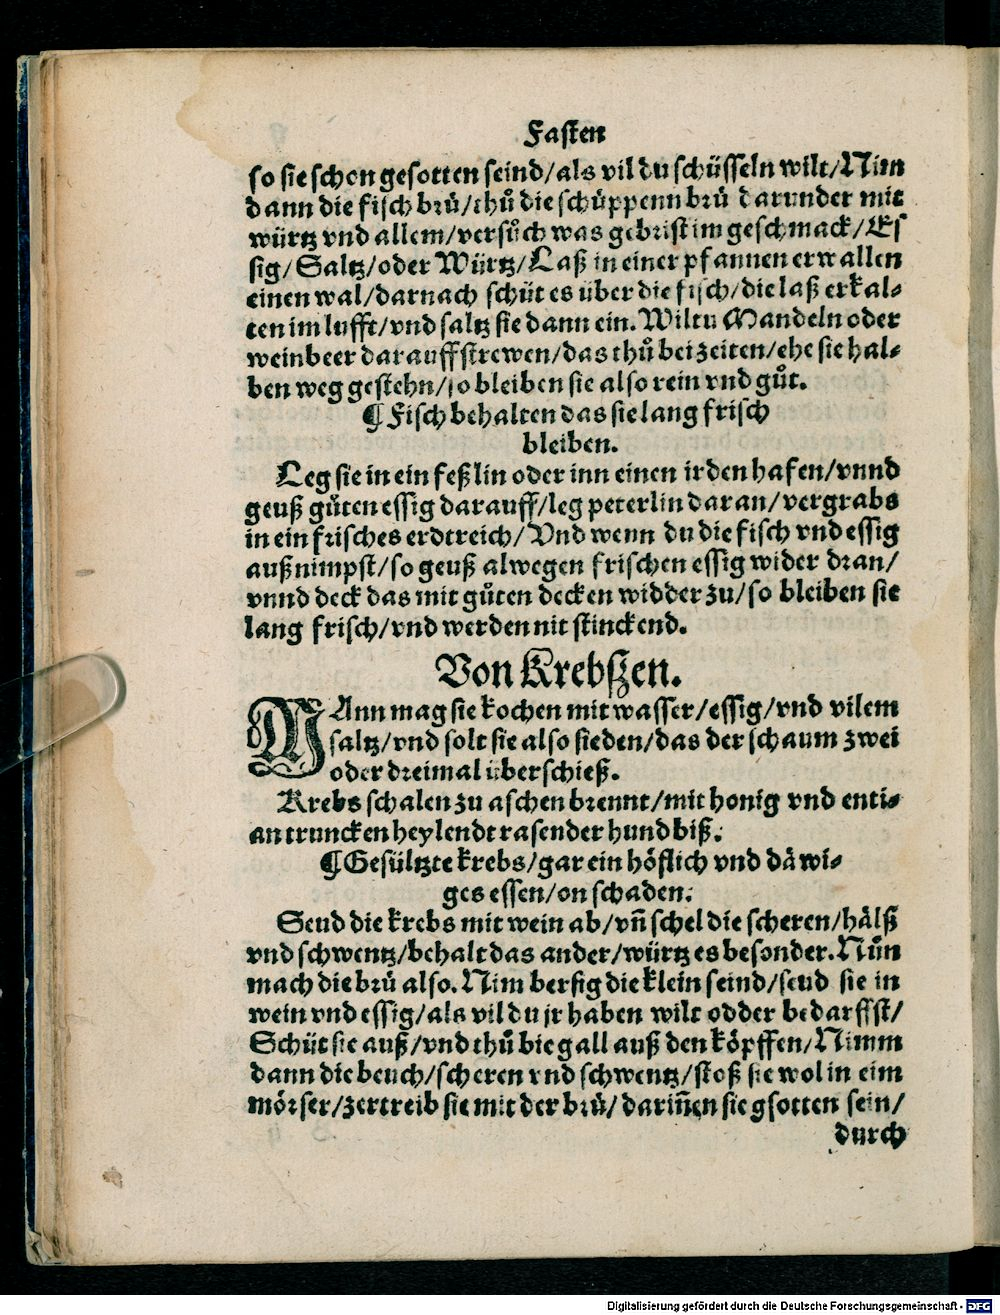 Fasten
so sie schon gesotten seind/als vil du schüsseln wilt/Nim
dann die fisch brů/thů die schůppenn brů darunder mit
würtz vnd allem/versůch was gebrist im geschmack/Es
sig/Saltz/oder Würtz/Laß in einer pfannen erwallen
einen wal/darnach schüt es über die fisch/die laß erkal⸗
ten im lufft/vnd saltz sie dann ein. Wiltu Mandeln oder
weinbeer darauff strewen/das thů bei zeiten/ehe sie hal⸗
ben weg gestehn/so bleiben sie also rein vnd gůt.
¶ Fisch behalten das sie lang frisch
bleiben.
Leg sie in ein feßlin oder inn einen irden hafen/vnnd
geuß gůten essig darauff/leg peterlin daran/vergrabs
in ein frisches erdtreich/Vnd wenn du die fisch vnd essig
auß nimpst/so geuß alwegen frischen essig wider dran/
vnnd deck das mit gůten decken widder zu/so bleiben sie
lang frisch/vnd werden nit stinckend.
Von Krebßen.
MAnn mag sie kochen mit wasser/essig/vnd vilem
saltz/vnd solt sie also sieden/das der schaum zwei
oder dreimal überschieß.
Krebs schalen zu aschen brennt/mit honig vnd enti⸗
an truncken heylendt rasender hund biß.
¶ Gesültzte krebs/gar ein höflich vnd däwi⸗
ges essen/on schaden.
Seud die krebs mit wein ab/vñ schel die scheren/hälß
vnd schwentz/behalt das ander/würtz es besonder. Nůn
mach die brů also. Nim bersig die klein seind/seud sie in
wein vnd essig/als vil du jr haben wilt odder bedarffst/
Schüt sie auß/vnd thů die gall auß den köpffen/Nimm
dann die beuch/scheren vnd schwentz/stoß sie wol in eim
mörser/zertreib sie mit der brů/dariñen sie gsotten sein/
durch
Digitalisierung gefördert durch die Deutsche Forschungsgemeinschaft - DFG